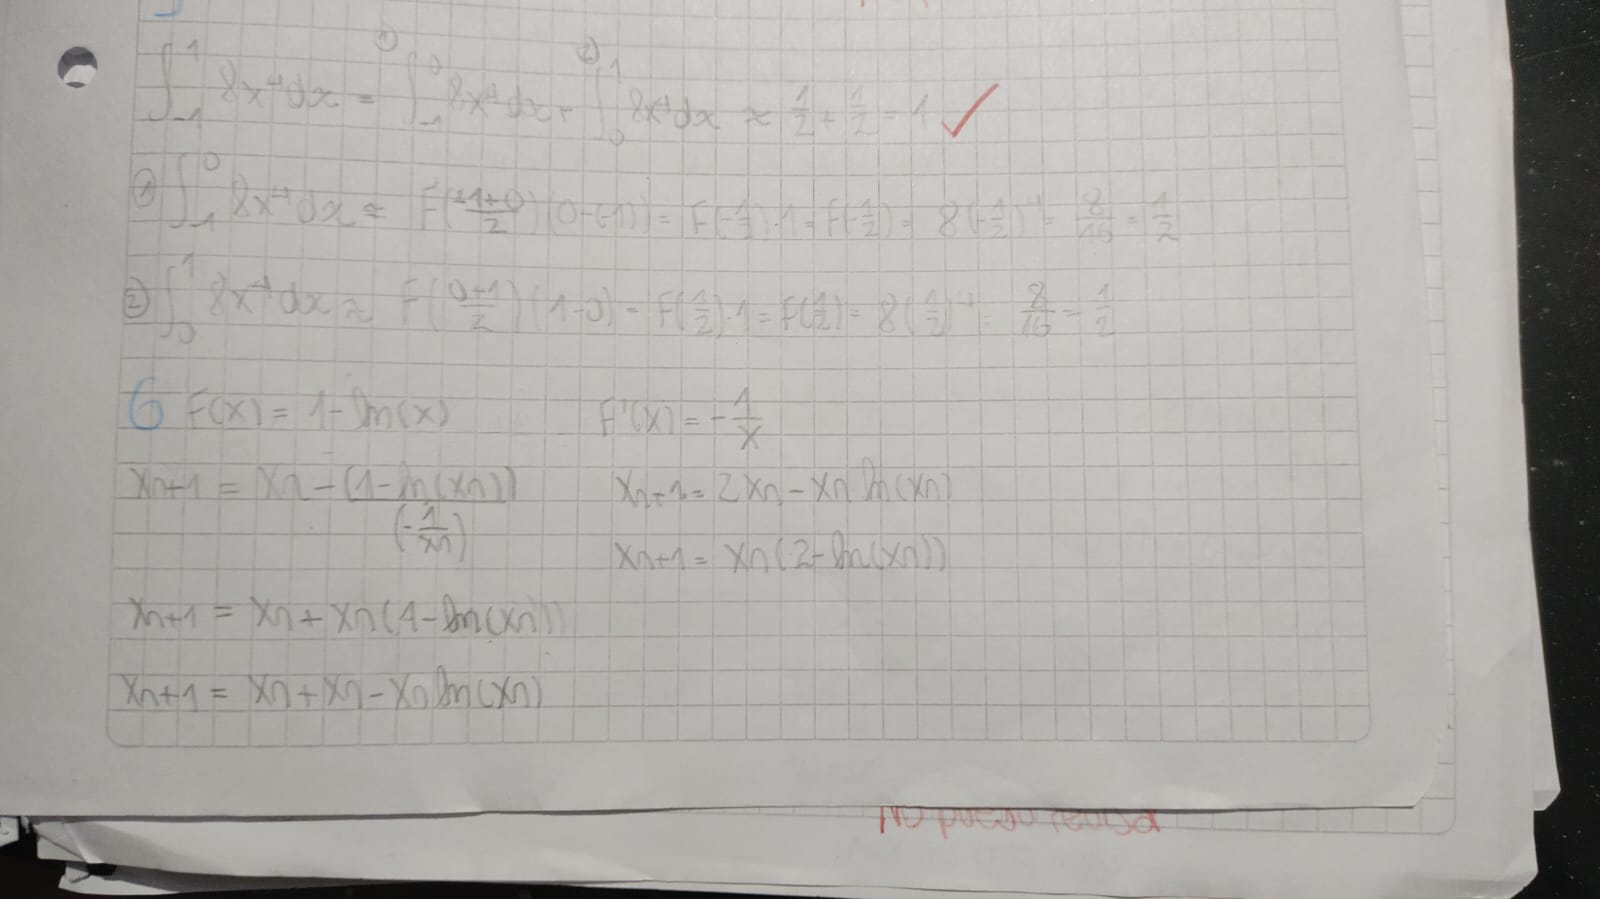 ∫₋₁¹ 8x⁴dx = ① ∫₋₁⁰ 8x⁴dx + ② ∫₀¹ 8x⁴dx ≈ 1/2 + 1/2 = 1 ✓
① ∫₋₁⁰ 8x⁴dx ≈ F((-1+0)/2)(0-(-1)) = F(-1/2)·1 = F(-1/2) = 8(-1/2)⁴ = 8/16 = 1/2
② ∫₀¹ 8x⁴dx ≈ F((0+1)/2)(1-0) = F(1/2)·1 = F(1/2) = 8(1/2)⁴ = 8/16 = 1/2
6 F(x) = 1-ln(x) F'(x) = -1/x
xn+1 = xn - (1-ln(xn))/(-1/xn) xn+1 = 2xn - xn ln(xn)
xn+1 = xn(2-ln(xn))
xn+1 = xn + xn(1-ln(xn))
xn+1 = xn + xn - xn ln(xn)